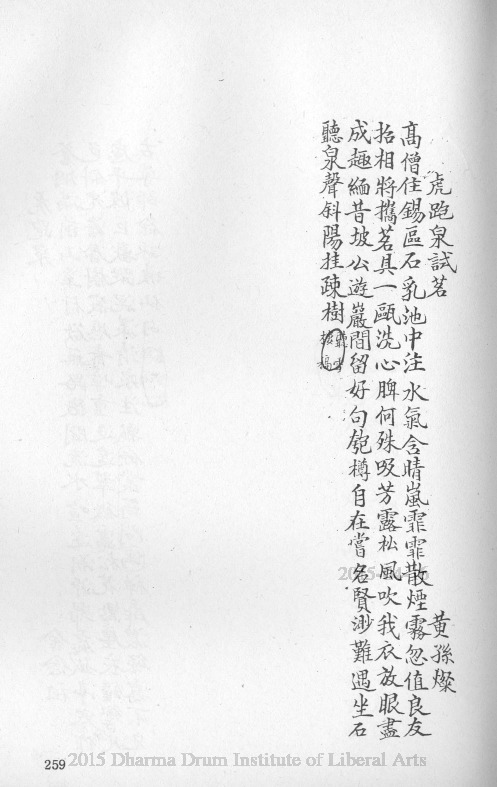 虎跑泉試茗　黃孫燦
髙僧住錫區石乳池中注水氣含晴嵐霏霏散煙霧忽值良友
招相將攜茗具一甌洗心脾何殊吸芳露松風吹我衣放眼盡
成趣緬昔坡公遊巖間留好句匏樽自在嘗名賢渺難遇坐石
聽泉聲斜陽挂疎樹
259
2015 Dharma Drum Institute of Liberal Arts